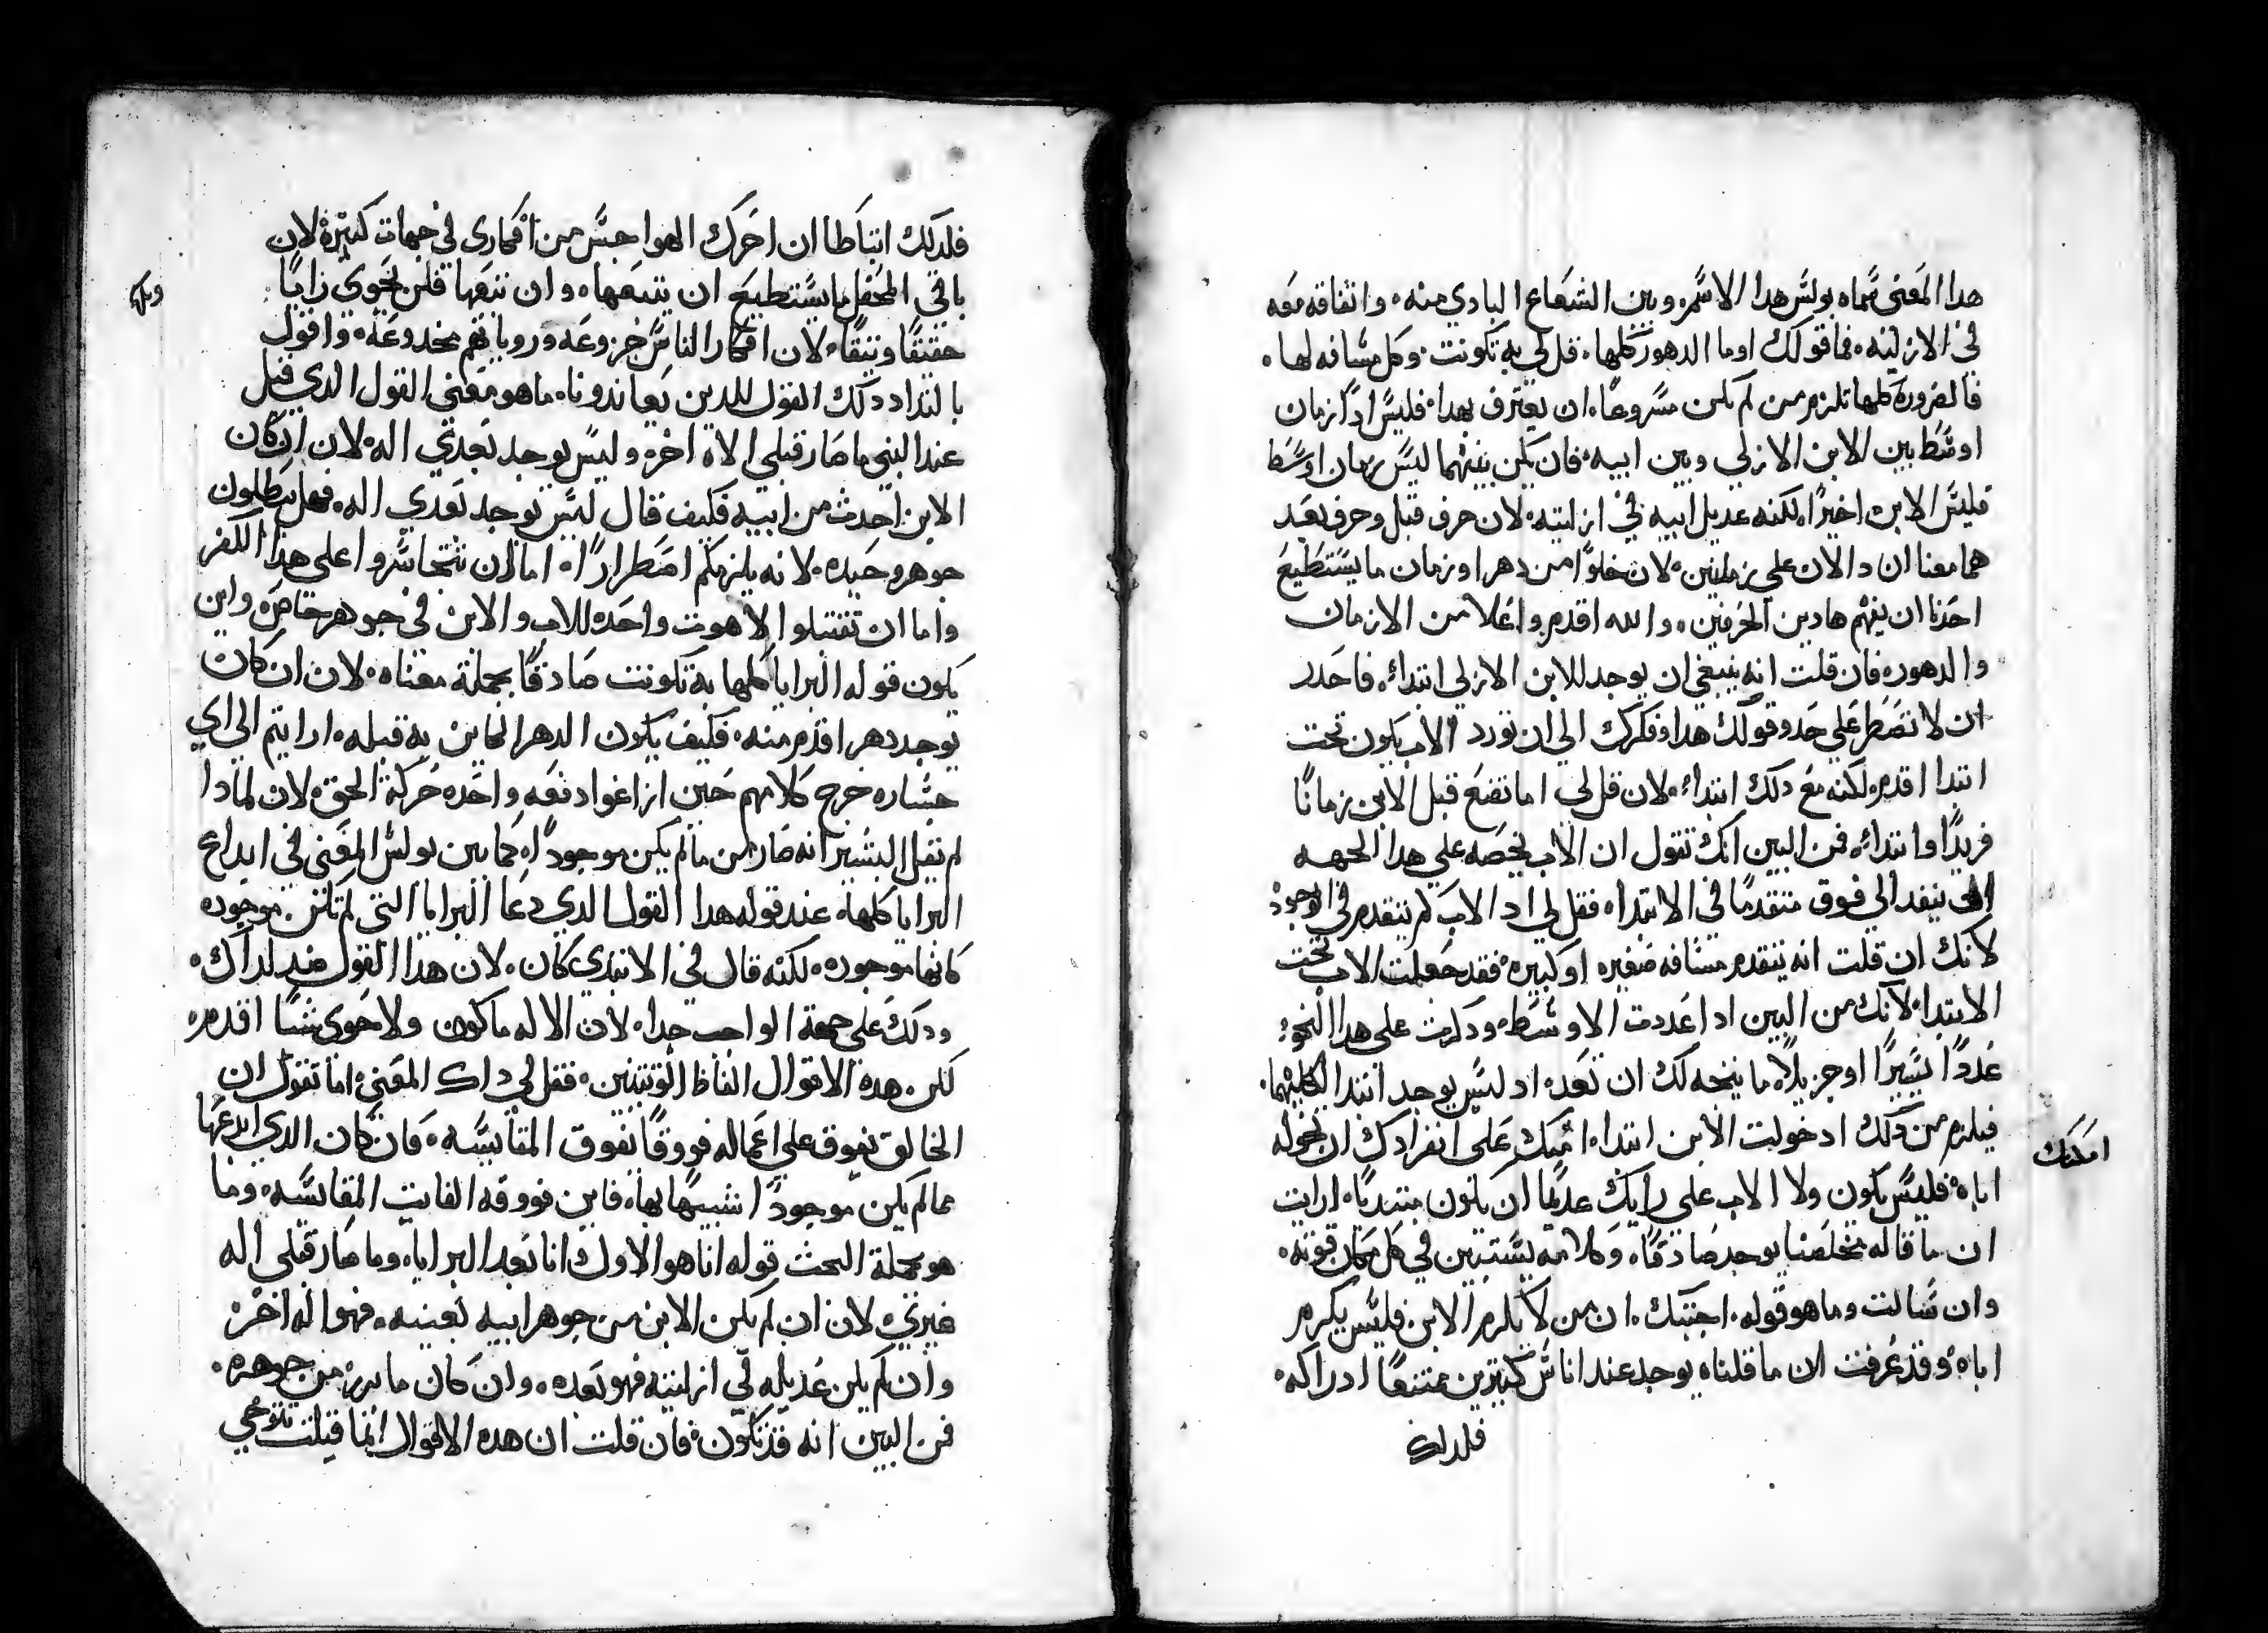 هدا المعني سماه بولس هدا الاسم وبين الشعاع البادي منه واتفاقه معه
في الازليه فما قولك اوما الدهور كلها قل لي به تكونت وكل مسافه لها
فالضروره كلها تلزم من لم يكن مسروعا ان يعترف بهدا فليس ادا زمان
اوسط بين الابن الازلي وبين ابيه فان يكن بينهما ليس زمان اوسط
فليس الابن اخيرا لكنه عديل ابيه في ازليته لان حرف قبل وحرف بعد
هما معنا ان دالان علي زمانين لان خلوا من دهر او زمان ما يستطيع
احدنا ان يفهم هادين الحرفين والله اقدم واعلا من الازمان
والدهور فان قلت انه ينبغي ان يوجد للابن الازلي ابتداء فاحدر
ان لا تضطر علي حدو قولك هدا وفكرك الي ان تورد الاب يكون تحت
ابتدا اقدم لكنه مع دلك ابتداء لان قل لي اما تضع قبل الابن زمانا
فريدا وابتداء فمن البين انك تقول ان الاب يخصه علي هدا الجهه
ينفد الي فوق متقدما في الابتدا فقل لي اد الاب لم يتقدم في الوجود
لانك ان قلت انه يتقدم مسافه صغيره او كبيره فقد جعلت الاب تحت
الابتدا لانك من البين ادا عددت الاوسطه ودكرت علي هدا النحو
عددا يسيرا او جزيلا ما يتجه لك ان تعده اد ليس يوجد ابتدا لكليهما
فيلزم من دلك اد خولت الابن ابتدا امكنك علي انفرادك ان تخوله
اباه فليس يكون ولا الاب علي رايك عديما ان يكون مبتديا ارايت
ان ما قاله مخلصنا يوجد صادقا وكلامه يستبين في كل مكان قوته
وان سالت وما هو قوله اجبتك ان من لا يكرم الابن فليس يكرم
اباه وقد عرفت ان ما قلناه يوجد عند اناس كتيرين ممتنعا ادراكه
فلدلك
امكنك
فلدلك ان احرك الهوا جس من افكاري في جهات كتيره لان
باقي المحفل ما يستطيع ان يتبعها وان تبعها فلن يحوي رايا
حقيقا وتيقا لان افكار الناس جزوعه وروياتهم مخدوعه واقول
بالتداد دلك القول للدين يعاندونا ما هو معني القول الدي قيل
عند النبي ما صار قبلي الاه اخر وليس يوجد بعدي اله لان ان كان
الابن احدث من ابيه فكيف قال ليس يوجد بعدي اله فهل تبطلون
جوهر وحيده لانه يلزمكم اضطرارا اما ان تتجاسروا علي هدا الكفر
واما ان تقتبلوا لاهوت واحده للاب والابن في جوهر خاص واين
يكون قوله البرايا كلها به تكونت صادقا بجملة معناه لان ان كان
يوجد دهر اقدم منه فكيف يكون الدهر الكاين به قبله ارايتم الي اي
جساره خرج كلامهم حين ازاغوا دفعه واحده حركة الحق لان لمادا
لم يقل البشير انه صار من ما لم يكن موجودا كما بين بولس المعني في ابداع
البرايا كلها عند قوله هدا القول الدي دعا البرايا التي لم تكن موجوده
كانها موجوده لكنه قال في الابتدي كان لان هدا القول ضد لداك
ودلك علي جهة الواجب جدا لان الاله ما كون ولا حوي شيا اقدم
لكن هده الاقوال الفاظ الوتنيين فقل لي داك المعني اما تقول ان
الخالق يفوق علي اعماله فووقا يفوق المقايسه فان كان الدي ابدعها
مما لم يكن موجودا شبيها بها فاين فووقه الفايت المقايسه وما
هو بجملة البحث قوله انا هو الاول وانا بعد البرايا وما صار قبلي اله
غيري لان ان لم يكن الابن من جوهر ابيه بعينه فهو اله اخر
وان لم يكن عديله في ازليته فهو بعده وان كان ما برز من جوهره
فمن البين انه قد تكون فان قلت ان هده الاقوال انما قيلت توخي